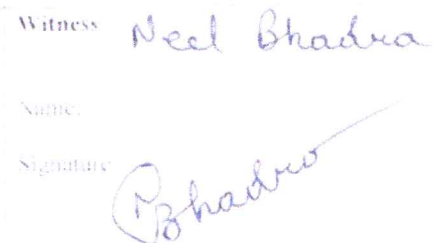 Witness Neel Bhadra
Name:
Signature PBhadra